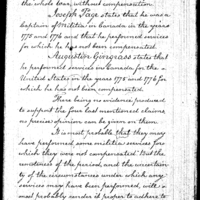 the whole war, without compensation.
Joseph Page states that he was a
captain of Militia in Canada in the years
1775 and 1776 and that he performed services
for which he has not been compensated.
Augustin Gingrass states that
he performed services in Canada for the
United States in the years 1775 and 1776 for
which he has not been compensated.
There being no evidence produced
to support the four last mentioned claims
no precise opinion can be given on them.
It is most probable that they may
have performed some militia services for
which they were not compensated. But the
remoteness of the period, and the uncertain-
ty of the circumstances under which any
services may have been performed, will
most probably render it proper to adhere to